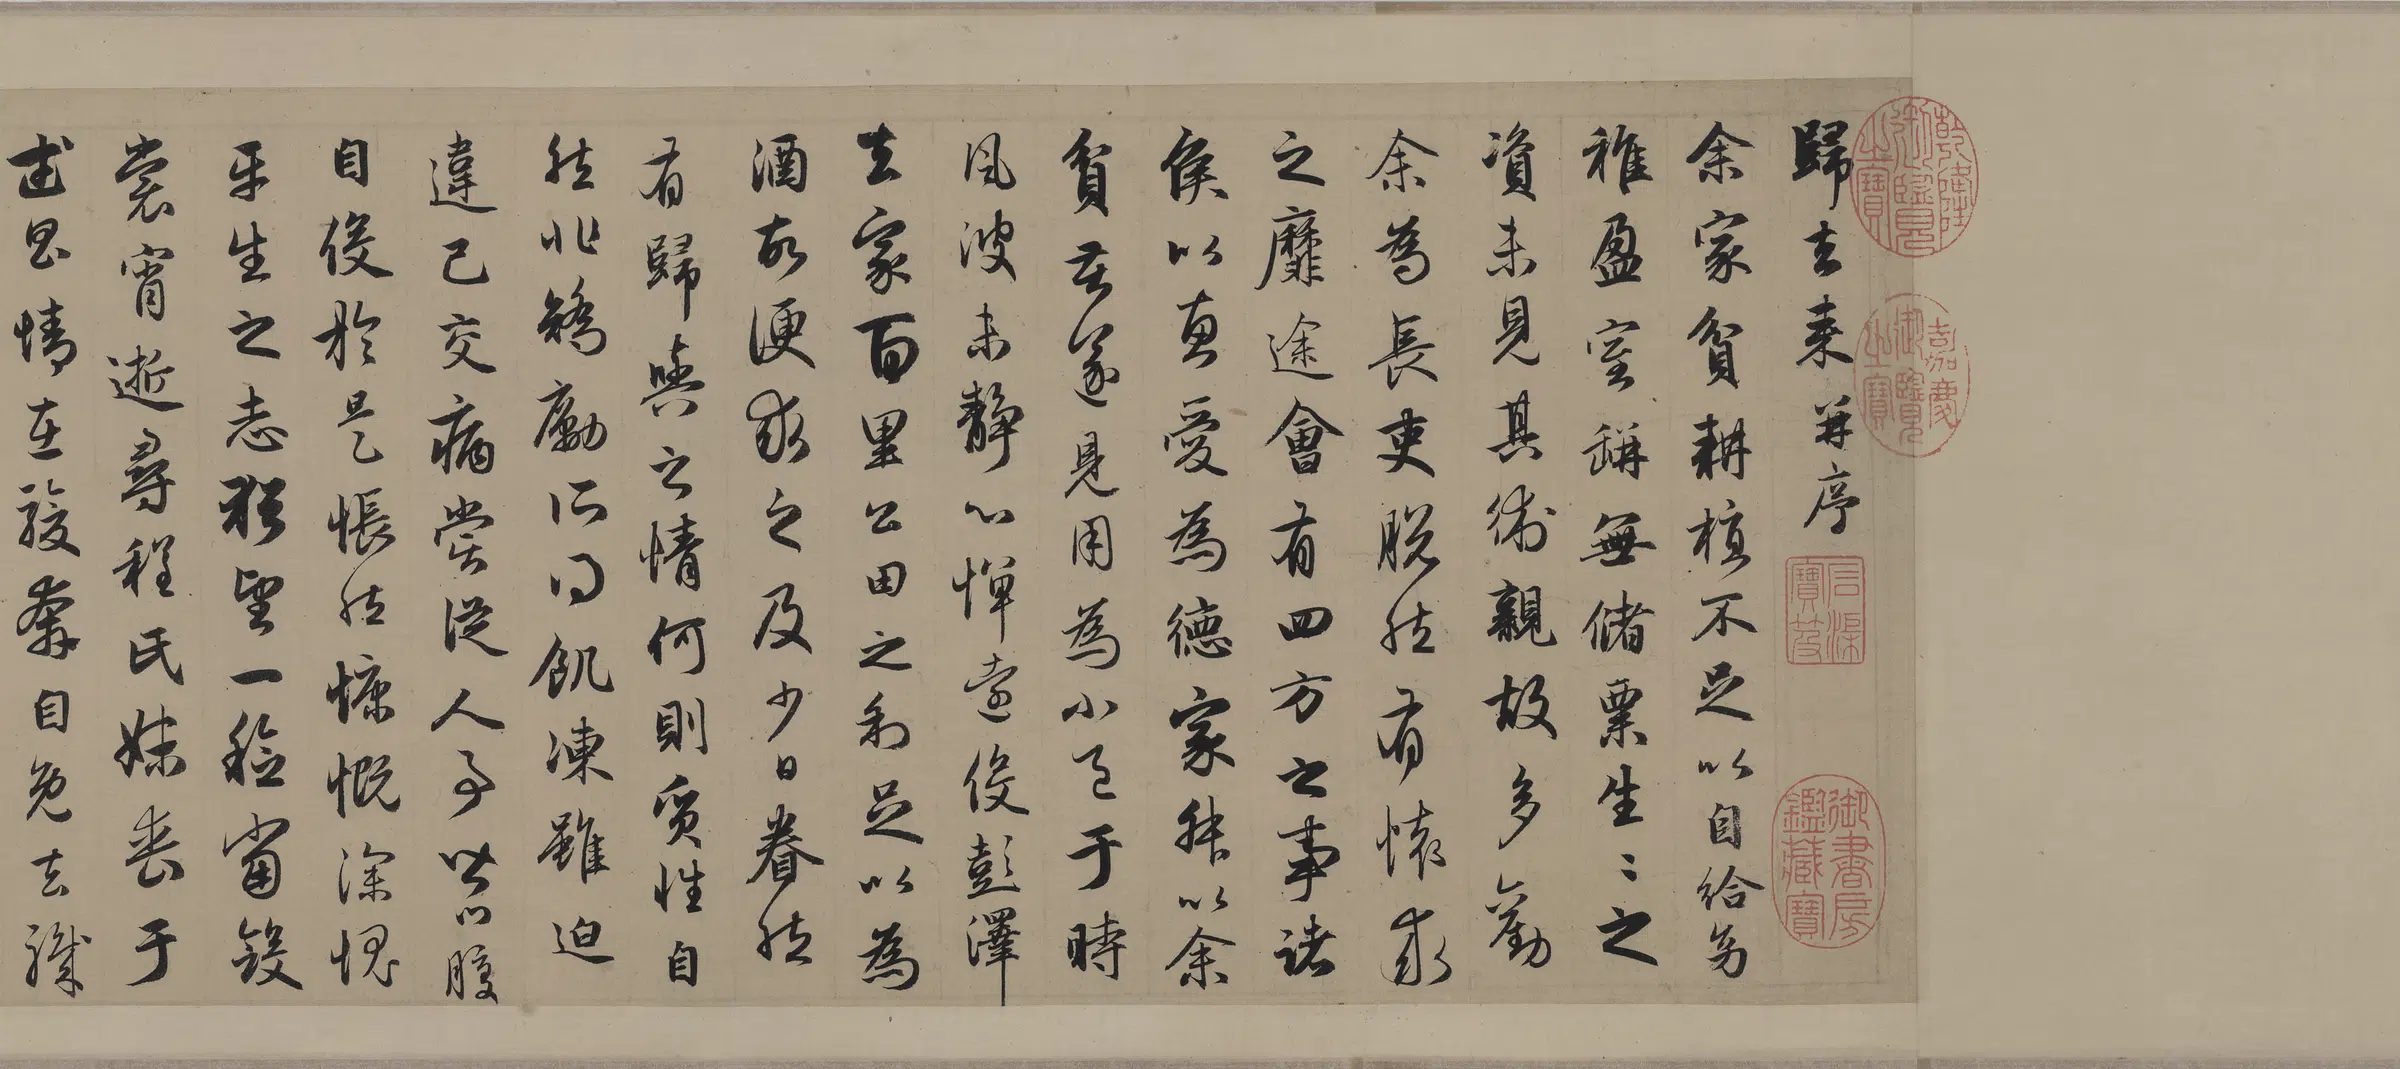 乾隆御覽之寶
嘉慶御覽之寶
歸去来并序
石渠寶笈
御書房鑑藏寶
余家貧耕植不足以自給幼
稚盈室缾無儲粟生〻之
資未見其術親故多勸
余為長吏脫然有懷求
之靡途會有四方之事諸
侯以惠愛為德家叔以余
貧苦遂見用為小邑于時
風波未靜心憚遠役彭澤
去家百里公田之利足以為
酒故便求之及少日眷然
有歸與之情何則質性自
然非矯勵所得飢凍雖迫
違己交病嘗從人事皆口腹
自役於是悵然慷慨深愧
平生之志猶望一稔當斂
裳宵逝尋程氏妹喪于
武昌情在駿奔自免去職